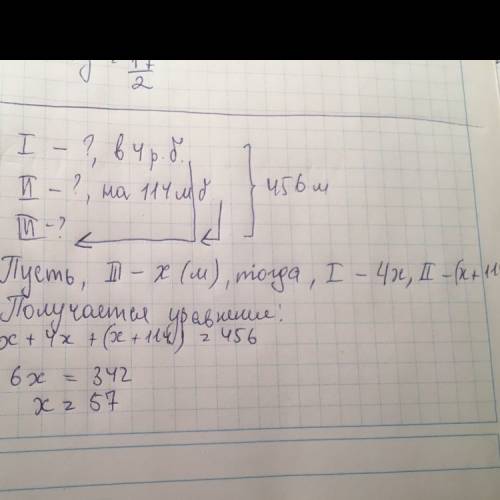 17
2
I - ?, в 4 р. б.
II - ?, на 114 м б
III - ?
456 м
Пусть, III - х (м), тогда, I - 4х, II - (х+11
Получается уравнение:
х + 4х + (х + 114) = 456
6х = 342
х = 57